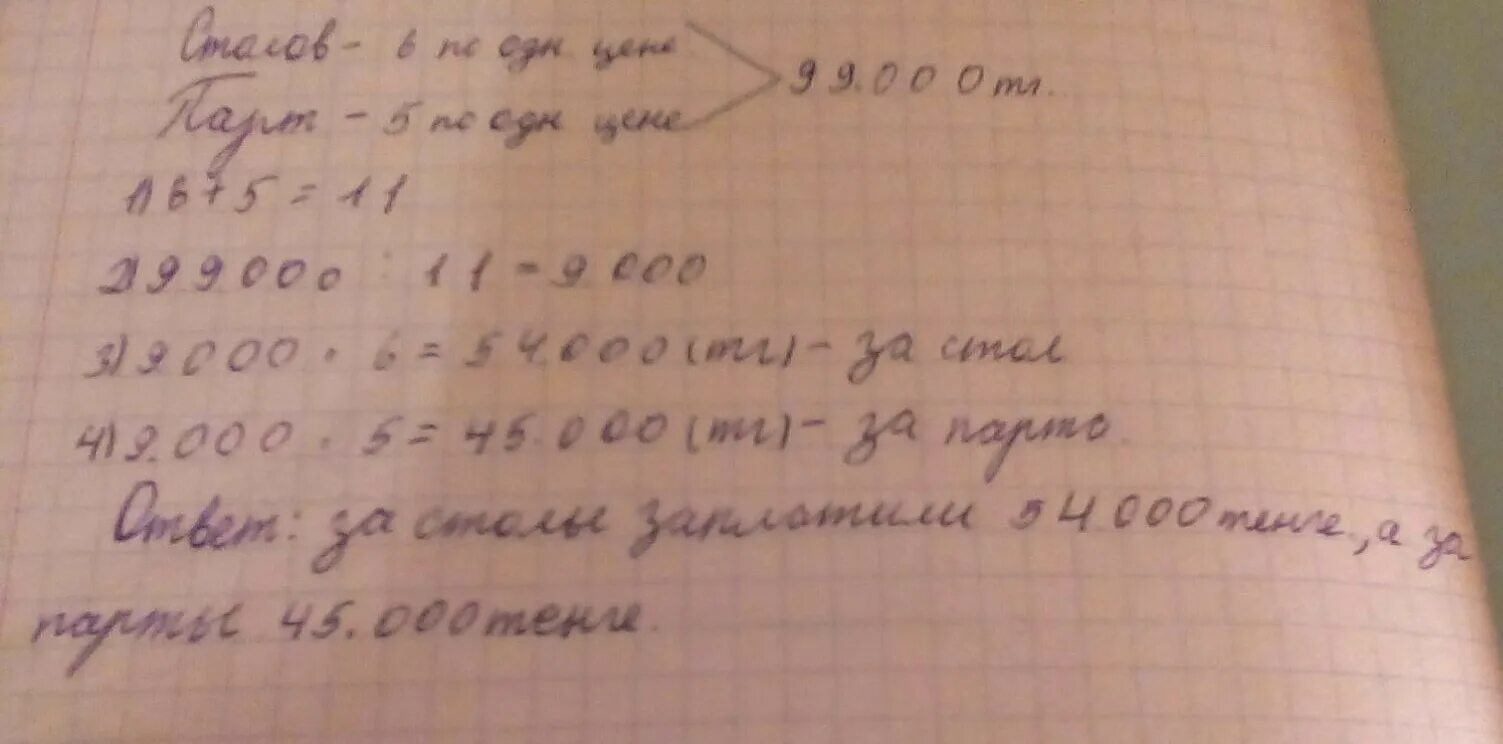 Столов - 6 по одн. цене
99.000 тг.
Парт - 5 по одн цене
1) 6 + 5 = 11
2) 99 000 : 11 = 9 000
3) 9.000 · 6 = 54.000 (тг) - за стол
4) 9.000 · 5 = 45.000 (тг) - за парты
Ответ: за столы заплатили 54 000 тенге, а за
парты 45.000 тенге.